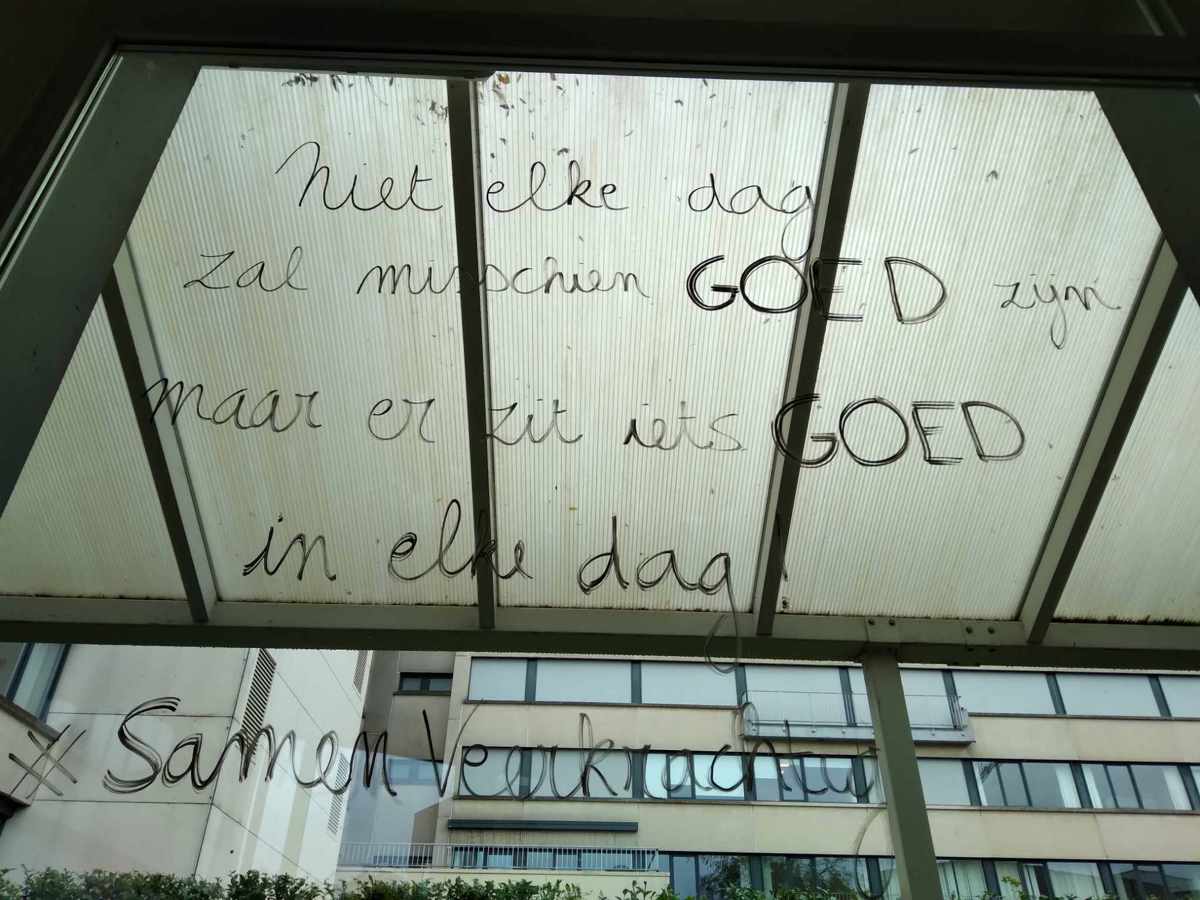 Niet elke dag
zal misschien GOED zijn
maar er zit iets GOED
in elke dag!
#SamenVeerkrachtig